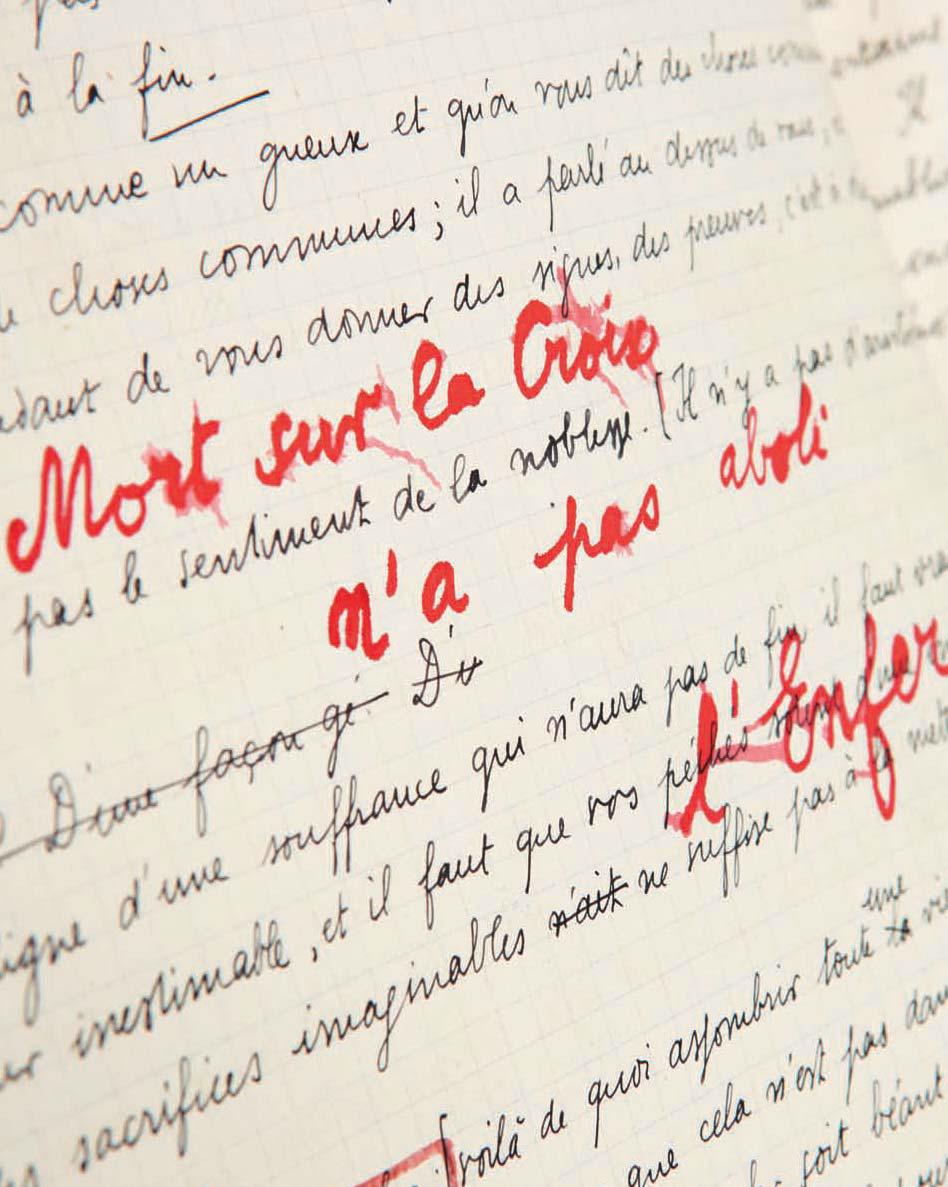 à la fin.
comme un gueux et qu'on vous dît des choses
choses communes ; il a parlé au dessus de vous,
de vous donner des signes, des preuves, c'est à
Mort sur la Croix
pas le sentiment de la noblesse. [Il n'y a pas
n'a pas aboli
D'une façon gé D'u
l'Enfer
d'une souffrance qui n'aura pas de fin il faut
inestimable, et il faut que vos péchés soient d'une
sacrifices imaginables n'ait ne suffise pas à la
une
[voilà de quoi assombrir toute la
que cela n'est pas dans
soit béant